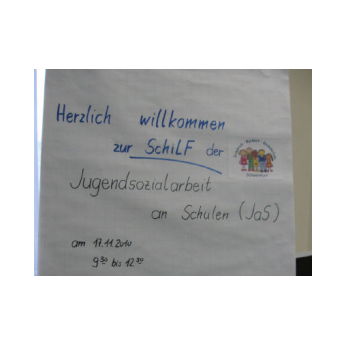 Herzlich willkommen
zur SchiLF der
Jugendsozialarbeit
an Schulen (JaS)
am 17.11.2010
9³⁰ bis 12³⁰